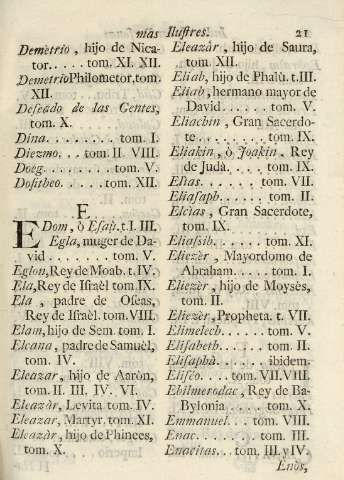 más Ilustres. 21
Demètrio, hijo de Nica-
tor..... tom. XI. XII.
DemetrioPhilometor,tom.
XII.
Deseado de las Gentes,
tom. X.
Dina......... tom. I.
Diezmo... tom. II VIII.
Doeg......... tom. V.
Dositheo.... tom. XII.
E
EDom, ò Esaù.t.I. III.
Egla, muger de Da-
vid ....... tom. V.
Eglon, Rey de Moab. t. IV.
Ela, Rey de Israèl tom. IX
Ela, padre de Oseas,
Rey de Israèl. tom. VIII.
Elam, hijo de Sem. tom. I.
Elcana, padre de Samuèl,
tom. IV.
Eleazar, hijo de Aaròn,
tom. II. III. IV. VI.
Eleazàr, Levita tom. IV.
Eleazar, Martyr. tom. XI.
Eleazàr, hijo de Phinees,
tom. X.
Eleazàr, hijo de Saura,
tom. XII.
Eliab, hijo de Phalù. t.III.
Eliab, hermano mayor de
David ....... tom. V.
Eliachin, Gran Sacerdo-
te......... tom. IX.
Eliakin, ò Joakin, Rey
de Judà..... tom. IX.
Elias....... tom. VII.
Eliasaph...... tom. II.
Elcìas, Gran Sacerdote,
tom. IX.
Eliasib....... tom. XI.
Eliezèr, Mayordomo de
Abraham..... tom. I.
Eliezèr, hijo de Moysès,
tom. II.
Eliezèr, Propheta. t. VII.
Elimelech..... tom. V.
Elisabeth..... tom. II.
Elisaphà...... ibidem.
Eliséo... tom. VII. VIII.
Ebilmerodac, Rey de Ba-
bylonia .... tom. X.
Emmanuel... tom. VIII.
Enac........ tom. III.
Enacitas... tom. III. y IV.
Enòs,